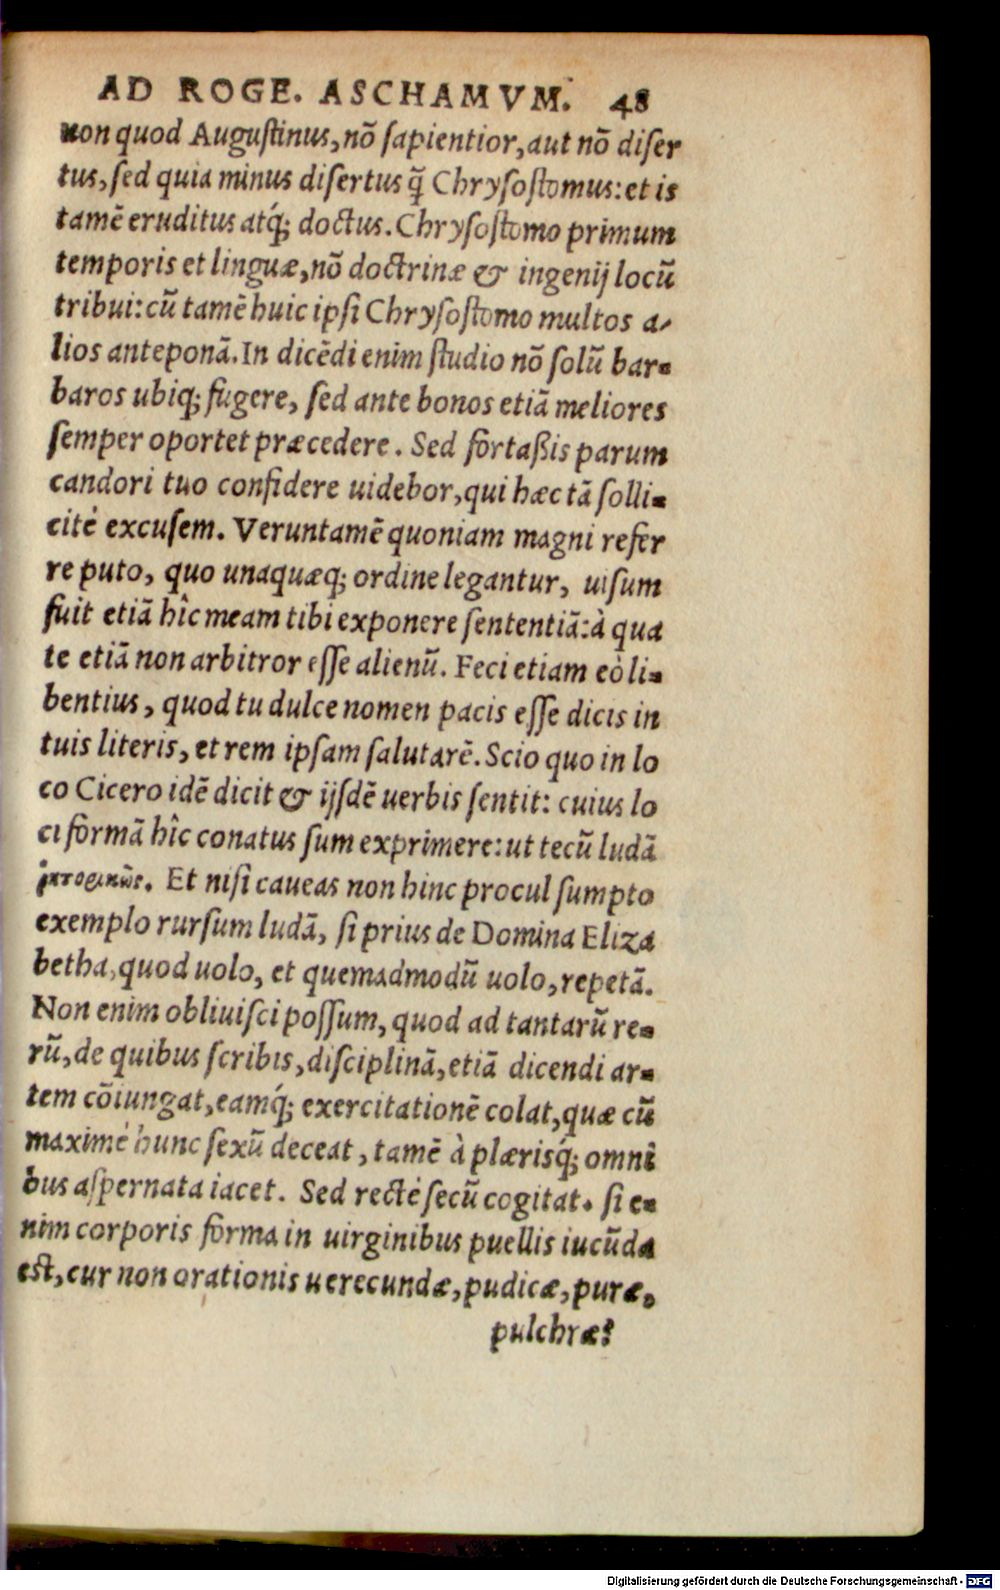 AD ROGE. ASCHAMVM. 48
non quod Augustinus, nõ sapientior, aut nõ diser
tus, sed quia minus disertus q̃ Chrysostomus: et is
tamẽ eruditus atq́; doctus. Chrysostomo primum
temporis et linguæ, nõ doctrinæ & ingenij locũ
tribui: cũ tamẽ huic ipsi Chrysostomo multos a-
lios anteponã. In dicẽdi enim studio nõ solũ bar-
baros ubiq; fugere, sed ante bonos etiã meliores
semper oportet præcedere. Sed fortaßis parum
candori tuo confidere uidebor, qui hæc tã solli-
citè excusem. Veruntamẽ quoniam magni refer
re puto, quo unaquæq; ordine legantur, uisum
fuit etiã hîc meam tibi exponere sententiã: à qua
te etiã non arbitror esse alienũ. Feci etiam eò li-
bentius, quod tu dulce nomen pacis esse dicis in
tuis literis, et rem ipsam salutarẽ. Scio quo in lo
co Cicero idẽ dicit & ijsdẽ uerbis sentit: cuius lo
ci formã hîc conatus sum exprimere: ut tecũ ludã
ῥητορικῶς. Et nisi caueas non hinc procul sumpto
exemplo rursum ludã, si prius de Domina Eliza
betha, quod uolo, et quemadmodũ uolo, repetã.
Non enim obliuisci possum, quod ad tantarũ re-
rũ, de quibus scribis, disciplinã, etiã dicendi ar-
tem cõiungat, eamq́; exercitationẽ colat, quæ cũ
maximè hunc sexũ deceat, tamẽ à plærisq́; omni
bus aspernata iacet. Sed rectè secũ cogitat. si e-
nim corporis forma in uirginibus puellis iucũda
est, cur non orationis uerecundæ, pudicæ, puræ,
pulchræ?
Digitalisierung gefördert durch die Deutsche Forschungsgemeinschaft - DFG